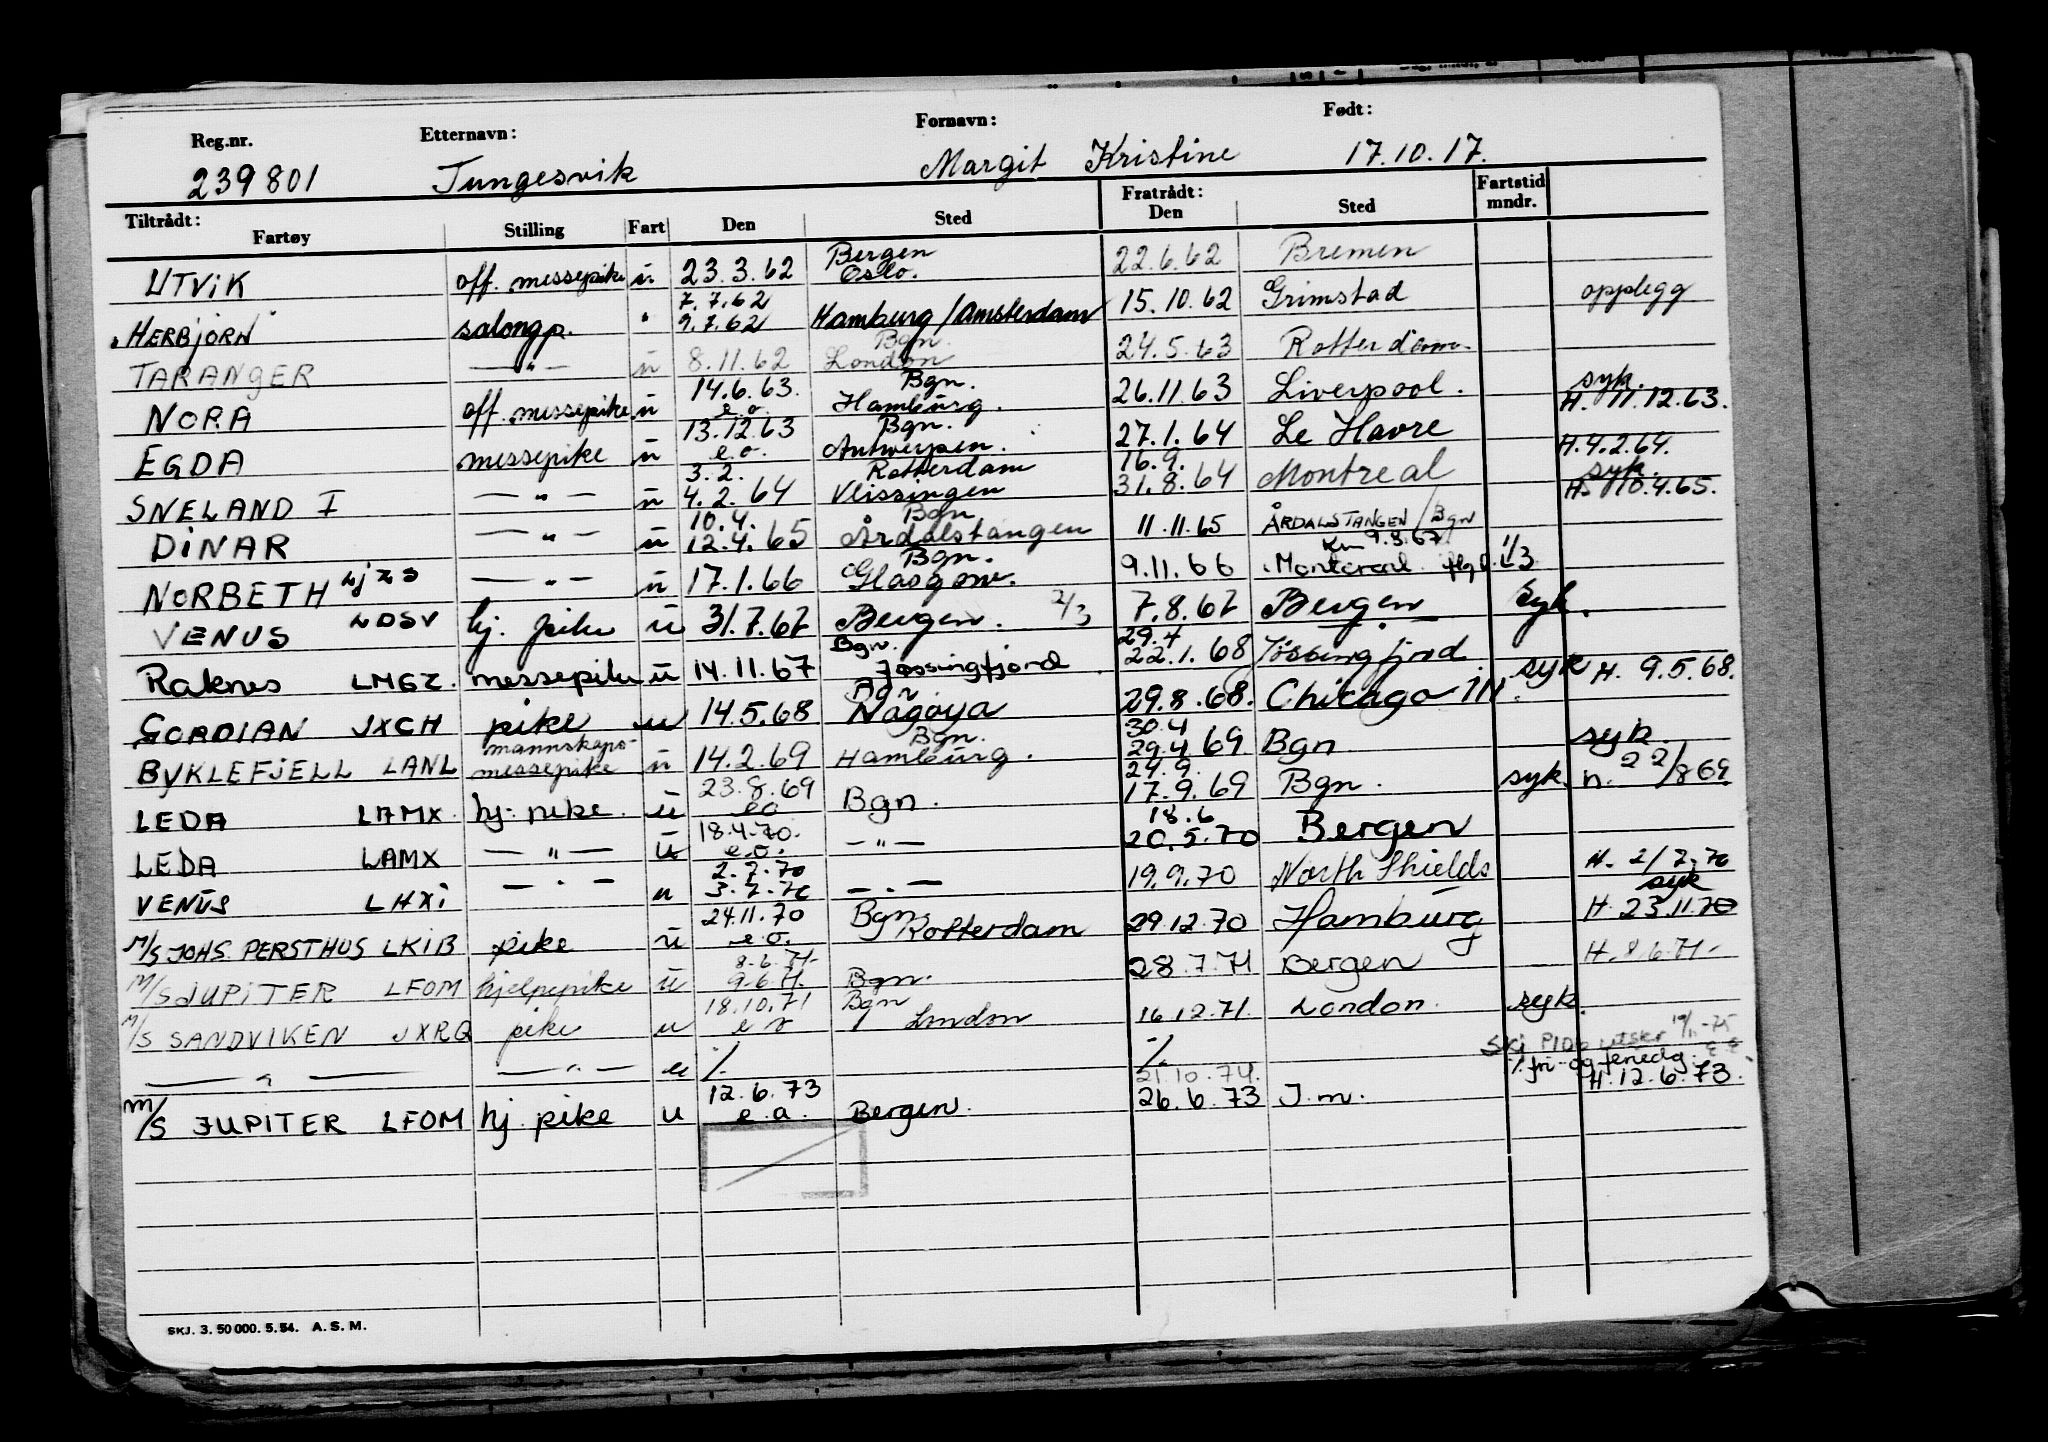 Reg.nr. Etternavn: Fornavn: Født:
239801 Tungesvik Margit Kristine 17.10.17.
Tiltrådt: Fratrådt: Fartstid
Fartøy Stilling Fart Den Sted Den Sted mndr.
Bergen
UTVIK off. messepike u 23.3.62 Oslo. 22.6.62 Bremen
7.7.62
HERBJORN salongp. " 9.7.62 Hamburg/Amsterdam 15.10.62 Grimstad opplegg
Bgn.
TARANGER — " — u 8.11.62 London 24.5.63 Rotterdam.
14.6.63. Bgn. syk.
NORA off. messepike u e.o. Hamburg. 26.11.63 Liverpool. H. 11.12.63.
13.12.63 Bgn.
EGDA messepike u e.o. Antwerpen. 27.1.64 Le Havre H.4.2.64.
3.2. Rotterdam 16.9. syk.
SNELAND I — " — u 4.2.64 Vlissingen 31.8.64 Montreal H 10.4.65.
10.4. Bgn
DINAR — " — u 12.4.65 Årdalstangen 11.11.65 ÅRDALSTANGEN/Bgn
Bgn. 9.3.67 1/3
NORBETH — " — u 17.1.66 Glasgow. 9.11.66 Montreal
VENUS LDSV hj. pike u 31.7.67 Bergen. 2/3 7.8.67 Bergen syk.
Bgn. 29.4
Raknes LMGZ. messepike u 14.11.67 Jøssingfjord 22.1.68 Jøssingfjord syk H. 9.5.68.
Bgn
GORDIAN JXCH pike u 14.5.68 Nagoya 29.8.68. Chicago Ill.
mannskaps- Bgn. 30.4
BYKLEFJELL LANL messepike u 14.2.69 Hamburg. 29.4 69 Bgn syk.
23.8.69 24.9.
LEDA LAMX hj. pike. u eo Bgn. 17.9.69 Bgn. syk. h. 22/8 69
18.4.70. 18.6
LEDA LAMX — " — u e.o. — " — 20.5.70 Bergen
2.7.70
VENUS LHXI — " — u 3.7.70 — " — 19.9.70 North Shields H. 2/7.70
24.11.70 Bgn. syk
M/S JOHS. PERSTHUS LKIB pike u e.o. Rotterdam 29.12.70 Hamburg H. 23.11.70
8.6.71.
M/S JUPITER LFOM hjelpepike u 9.6.71. Bgn. 28.7.71 Bergen H. 8.6.71-
18.10.71 Bgn
M/S SANDVIKEN JXRQ pike u eo London 16.12.71. London. syk.
Skj P10b utskr 19/11-75
— " — — " — u %. %. % fri- og feriedg.
12.6.73 21.10.74.
M/S JUPITER LFOM hj. pike u e.a. Bergen. 26.6.73 I.m. H. 12.6.73.
SKJ. 3. 50 000. 5. 54. A. S. M.